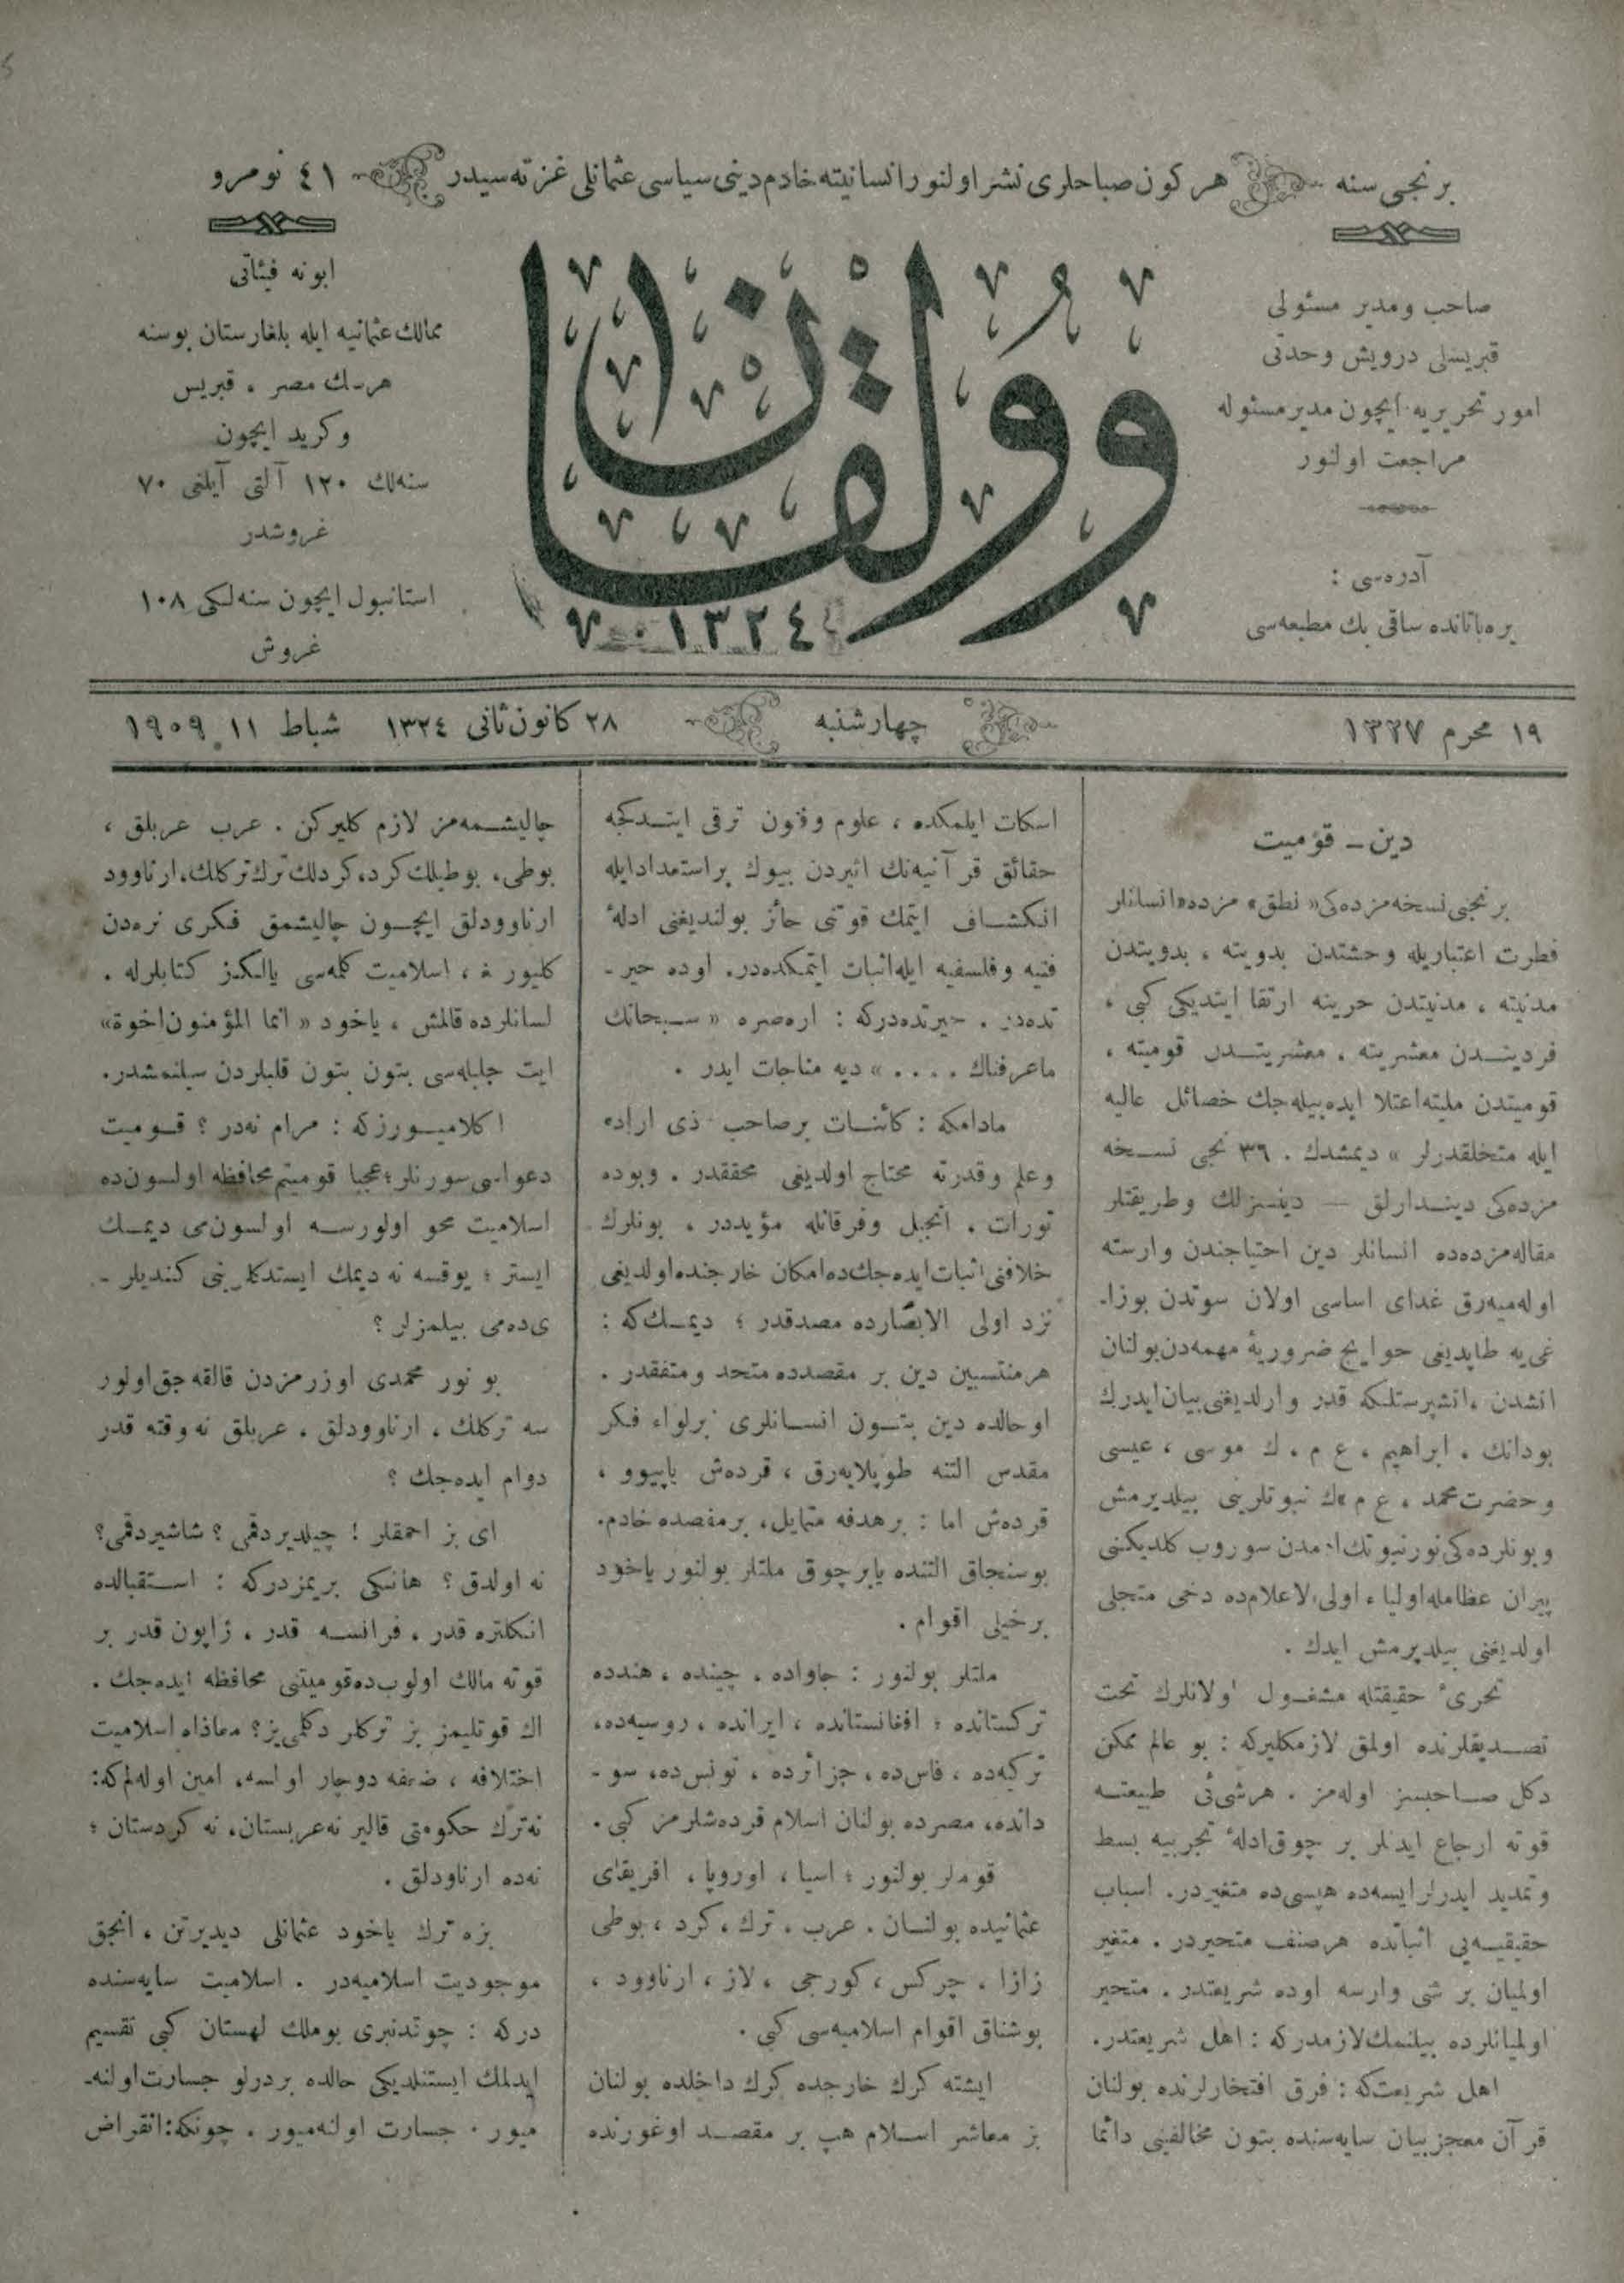 برنجی سنه
هر كون صباحلری نشر اولنور انسانیته خادم دینی سیاسی عثمانلی غزته سیدر
٤١ نومرو
صاحب و مدیر مسئولی
قبریسلی درویش وحدتی
امور تحریریه ایچون مدیر مسئوله
مراجعت اولنور
آدره‌سی :
یره‌باتانده ساقی بك مطبعه‌سی
وولقان
١٣٢٤
ابونه فیئاتی
ممالك عثمانیه ایله بلغارستان بوسنه
هرسك مصر ، قبریس
و كرید ایچون
سنه‌لك ١٢٠ آلتی آیلغی ٧٠
غروشدر
استانبول ایچون سنه‌لكی ١٠٨
غروش
١٩ محرم ١٣٢٧
چهارشنبه
٢٨ كانون ثانی ١٣٢٤ شباط ١١ ١٩٠٩
دین ــ قومیت
برنجی نسخه مزده‌كی « نطق » مزده « انسانلر
فطرت اعتباریله وحشتدن بدویته ، بدویتدن
مدنیته ، مدنیتدن حریته ارتقا ایتدیكی كبی ،
فردیتـدن معشریته ، معشریتـدن قومیته ،
قومیتدن ملیته اعتلا ایده‌بیله‌جك خصائل عالیه
ایله متخلقدرلر » دیمشدك . ٣٦ نجی نسـخه
مزده‌كی دینـدارلق — دینسزلك وطریقتلر
مقاله‌مزده‌ده انسانلر دین احتیاجندن وارسته
اوله‌میه‌رق غدای اساسی اولان سوتدن بوزا-
غی‌یه طاپدیغی حوایج ضروریهٔ مهمه‌دن بولنان
اتشدن ، اتشپرستلكه قدر واردیغنی بیان ایدرك
بودانك ، ابراهیم ، ع م ، ك موسی ، عیسی
و حضرت محمد ، ع م » ك نبوتلرینی بیلدیرمش
و بونلرده‌كی نور نبوتك آدمدن سوروب كلدیكنی
پیران عظامله اولیاء اولی الاعلام‌ده دخی متجلی
اولدیغنی بیلدیرمش ایدك .
تحریٔ حقیقتله مشغـول اولانلرك تحت
تصـدیقلرنده اولمق لازمكلیركه : بو عالم ممكن
دكل صـاحبسز اوله‌مز . هرشی‌ئی طبیعتـه
قوته ارجاع ایدنلر بر چوق ادلهٔ تجربیه بسط
و تمدید ایدرلرایسه‌ده هپسی‌ده متغیردر . اسباب
حقیقیـه‌یی اثباتده هرصنف متحیردر . متغیر
اولمیان بر شی وارسه اوده شریعتدر . متحیر
اولمیانلرده بیلنمك لازمدركه : اهل شریعتدر .
اهل شریعت‌كه : فرق افتخارلرنده بولنان
قرآن معجزبیان سایه‌سنده بتون مخالفینی دائما
اسكات ایلمكده ، علوم وفنون ترقی ایتـدكجه
حقائق قرآنیه‌نك اثیردن بیوك بر استعداد ایله
انكشـاف ایتمك قوتنی حائز بولندیغنی ادلهٔ
فنیه وفلسفیه ایله اثبات ایتمكده‌در. اوده حیر-
تده‌در . حیرتده‌دركه : اره‌صره « سـبحانك
ماعرفناك .... » دیه مناجات ایدر .
مادامكه : كائنـات برصاحب ذی اراده
وعلم وقدرته محتاج اولدیغی محققدر . وبوده
تورات ، انجیل وفرقانله مؤیددر ، بونلرك
خلافنی اثبات ایده‌جك‌ده امكان خارجنده اولدیغی
نزد اولی الابصارده مصدقدر ؛ دیمـك‌كه :
هرمنتسبین دین بر مقصدده متحد و متفقدر .
اوحالده دین بتـون انسـانلری برلواء فكر
مقدس التنه طوپلایه‌رق ، قرده‌ش یاپیوو ،
قرده‌ش اما : برهدفه متمایل، برمقصده خادم.
بوسنجاق التنده یا برچوق ملتلر بولنور یاخود
برخیلی اقوام .
ملتلر بولنور : جاواده ، چینده ، هندده
تركستانده ؛ افغانستانده ، ایرانده ، روسیه‌ده،
تركیه‌ده ، فاس‌ده ، جزائرده ، تونس‌ده، سو-
دانده، مصرده بولنان اسلام قرده‌شلرمز كبی .
قوملر بولنور ؛ اسیا ، اوروپا ، افریقای
عثمانیده بولنـان ، عرب ، ترك ، كرد ، بوطی
زازا ، چركس ، كورجی ، لاز ، ارناوود ،
بوشناق اقوام اسلامیه‌سی كبی .
ایشته كرك خارجده كرك داخلده بولنان
بز معاشر اسـلام هپ بر مقصـد اوغورنده
چالیشـمه‌مز لازم كلیركن . عرب عربلق ،
بوطی، بوطیلك كرد، كردلك ترك تركلك، ارناوود
ارناوودلق ایچـون چالیشمق فكری نره‌دن
كلیور ؟ ، اسلامیت كلمه‌سی یالكز كتابلرله .
لسانلرده قالمش ، یاخود « انما المؤمنون اخوة »
ایت جلیله‌سی بتون بتون قلبلردن سیلنمشدر.
اكلامیـورزكه : مرام نه‌در ؟ قـومیت
دعواسی سورنلر ؛ عجبا قومیتم محافظه اولسون‌ده
اسلامیت محو اولورسـه اولسون‌می دیمـك
ایستر ؛ یوقسه نه دیمك ایستدكلرینی كندیلر-
ی‌ده‌می بیلمزلر ؟
بو نور محمدی اوزرمزدن قالقه‌جق اولور
سه تركلك ، ارناوودلق ، عربلق نه وقته قدر
دوام ایده‌جك ؟
ای بز احمقلر ! چیلدیردقمی ؟ شاشیردقمی ؟
نه اولدق ؟ هانكی بریمزدركه : اسـتقبالده
انكلتره قدر ، فرانسـه قدر ، ژاپون قدر بر
قوته مالك اولوب‌ده قومیتنی محافظه ایده‌جك .
اك قوتلیمز بز تركلر دكلمی‌یز؟ معاذاه اسلامیت
اختلافه ، ضعفه دوچار اولسه، امین اوله‌لم‌كه:
نه‌ترك حكومتی قالیر نه‌عربستان، نه كردستان ؛
نه‌ده ارناودلق .
بزه ترك یاخود عثمانلی دیدیرتن ، انجق
موجودیت اسلامیه‌در . اسلامیت سایه‌سنده
دركه : چوقدنبری بوملك لهستان كبی تقسیم
ایدلمك ایستنلدیكی حالده بردرلو جسارت اولنه-
میور . جسارت اولنه‌میور . چونكه:انقراض